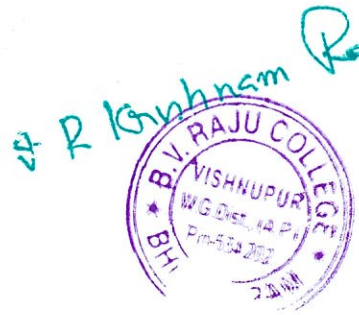 R Krishnam
B.V. RAJU COLLEGE
VISHNUPUR
W.G.Dist., (A.P.)
Pin-534 202
BHI